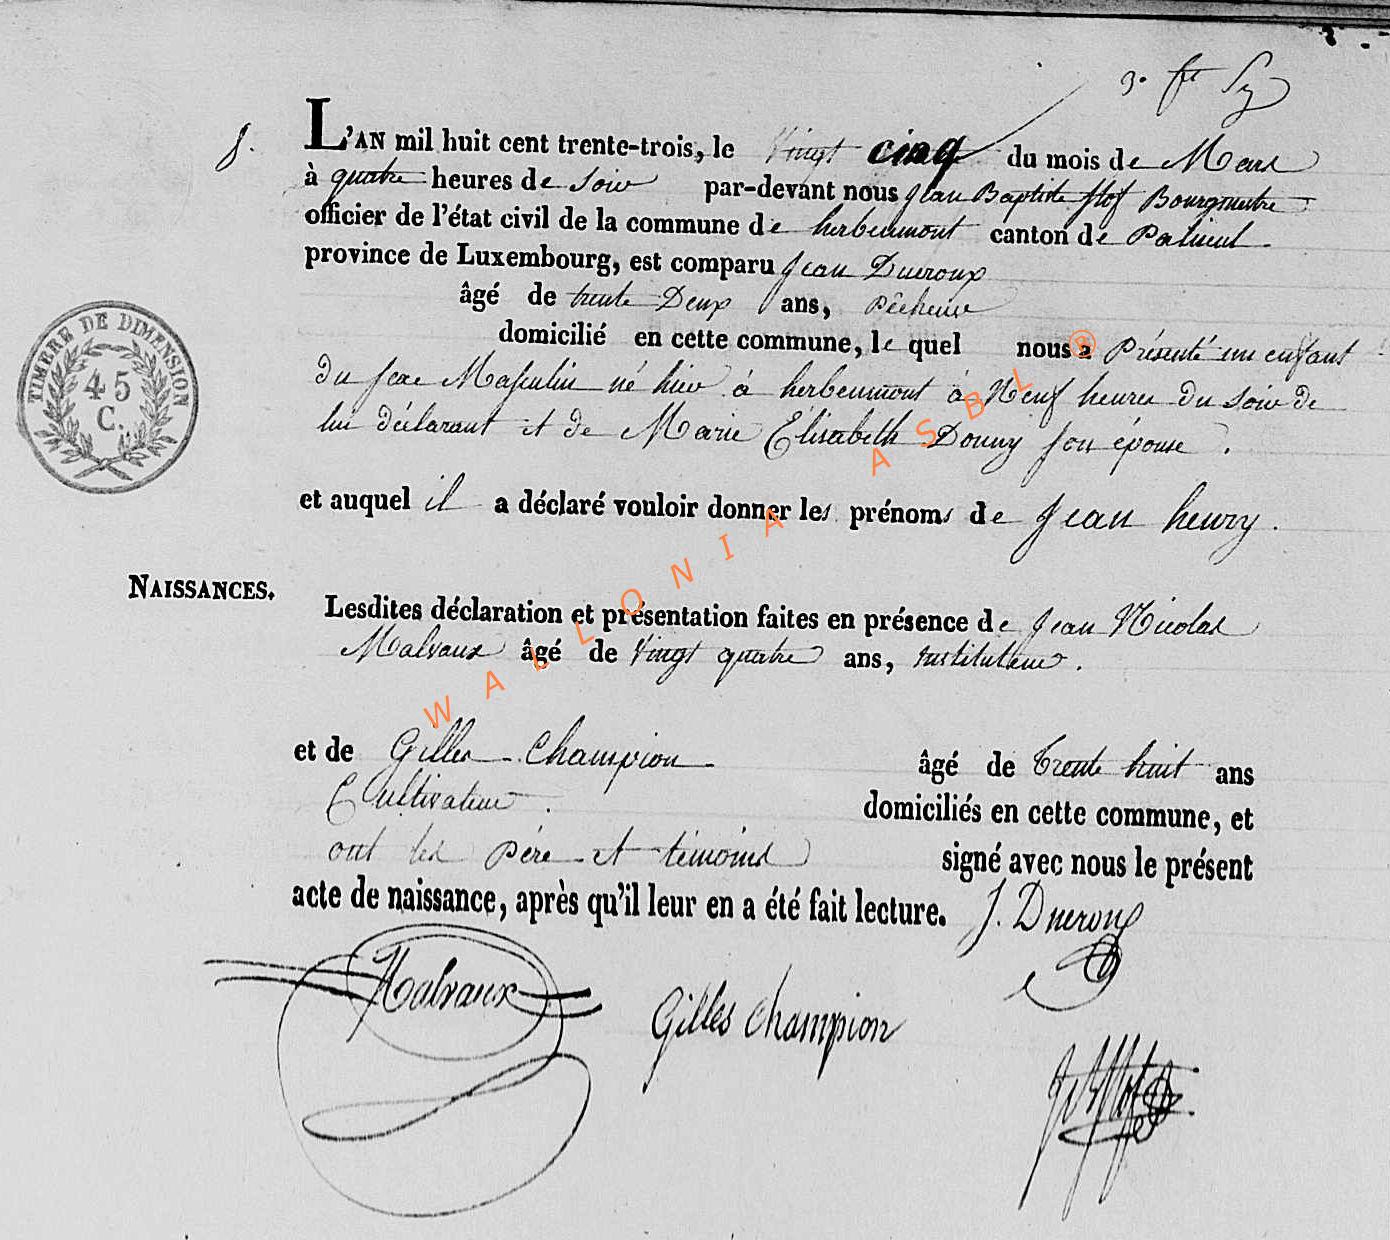 3. ft
8.
L'AN mil huit cent trente-trois, le Vingt cinq du mois de Mars
à quatre heures de soir par-devant nous Jean Baptiste Bourgmestre
officier de l'état civil de la commune de herbeumont canton de Paliseul
province de Luxembourg, est comparu Jean Dueroux
âgé de trente Deux ans, Pêcheur
domicilié en cette commune, le quel nous a Présenté un enfant
du sexe Masculin né hier à herbeumont à Neuf heures du soir de
lui déclarant et de Marie Elisabeth Donny son épouse.
et auquel il a déclaré vouloir donner les prénoms de Jean henry.
NAISSANCES.
Lesdites déclaration et présentation faites en présence de Jean Nicolas
Malvaux âgé de Vingt quatre ans, Instituteur.
et de Gilles Champion âgé de Trente huit ans
Cultivateur. domiciliés en cette commune, et
ont les père et témoins signé avec nous le présent
acte de naissance, après qu'il leur en a été fait lecture. J. Dueroux
Malvaux
Gilles Champion
TIMBRE DE DIMENSION
45
C.
WALLONIA ASBL ®